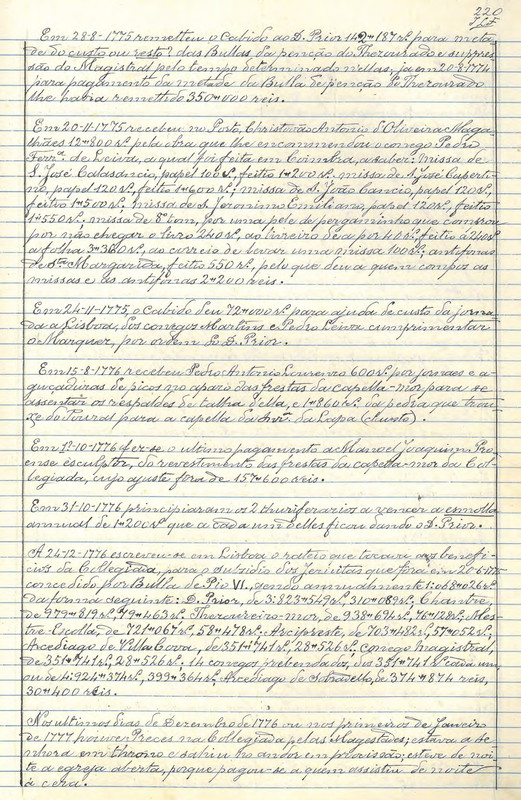 220
Em 28-8-1775 remetteu o Cabido ao D. Prior 142$187 rs. para meta-
de do custo ou resto? das Bullas, da penção do Thezourado e suppres-
são do Magistral pelo tempo determinado n'ellas, ja em 20-8-1774
para pagamento da metade da Bulla de penção do Thezourado
lhe havia remettido 350$000 reis.
Em 20-11-1775 recebeu no Porto, Christovão Antonio d'Oliveira Maga-
lhães 12$800 rs. pela obra que lhe encommendou o conego Pedro
Ferrª. de Leiva, a qual foi feita em Coimbra, a saber: missa de
S. José Calasancio, papel 100 rs., feitio 1$200 rs. missa de S. José Cuperti-
no, papel 120 rs., feitio 1$600 rs.; missa de S. João Cancio, papel 120 rs.,
feitio 1$500 rs.; missa de S. Jeronimo Emiliano, papel 120 rs., feitio
1$550 rs.; missa de 8º tom, por uma pele de pergaminho que comprou
por não chegar o livro 240 rs., ao livreiro de a por 40 rs., feitio a 240 rs.
a folha 3$360 rs., ao correio de levar uma missa 100 rs.; antifonas
de Stª Margarida, feitio 550 rs., pelo que deu a quem compos as
missas e as antifonas 2$200 reis.
Em 24-11-1775, o Cabido deu 72$000 rs. para ajuda de custo da jorna-
da a Lisboa, dos conegos Martins e Pedro Leiva cumprimentar
o Marquez, por ordem do D. Prior.
Em 15-8-1776 recebeu Pedro Antonio Loureiro 600 rs. por jornaes e a-
guçaduras de picos no aparo das frestas da capella-mor para se
assentar os respaldes de talha d'ella, e 1$860 rs. da pedra que trou-
xe do Toural para a capella da Snrª. da Lapa (claustro).
Em 1º-10-1776 fez-se o ultimo pagamento a Manoel Joaquim Pro-
ense esculptor, do revestimento das frestas da capella-mor da Col-
legiada, cujo ajuste fora de 157$600 reis.
Em 31-10-1776 principiaram os 2 thuriferarios a vencer a esmolla
annual de 1$200 rs. que a cada um delles ficou dando o D. Prior.
A 24-12-1776 escreveu-se em Lisboa o rateio que tocara aos benefi-
cios da Collegiada, para o subsidio dos Jesuitas que fora em 20-6-1775
concedido por Bulla de Pio VI, sendo annualmente 1:068$026 rs.
da forma seguinte: D. Prior, de 3:823$549 rs., 310$089 rs.; Chantre,
de 979$819 rs., 79$463 rs. Thezoureiro-mor, de 938$694 rs., 76$128 rs.; Mes-
tre-Escolla, de 721$067 rs., 58$478 rs. Arcipreste, de 703$482 rs., 57$052 rs.,
Arcediago de Villa Cova, de 351$741 rs., 28$526 rs.; conego magistral,
de 351$741 rs., 28$526 rs.. 14 conegos prebendados, dos 351$741 rs. cada um,
ou de 4:924$374 rs., 399$364 rs.; Arcediago de Sobradello, de 374$874 reis,
30$400 reis.
Nos ultimos dias de Dezembro de 1776 ou nos primeiros de Janeiro
de 1777 houve Preces na Collegiada pelas Magestades; estava a Se-
nhora em throno e sahiu no andor em procissão; esteve de noi-
te a egreja aberta, porque pagou-se a quem assistiu de noite
á cera.